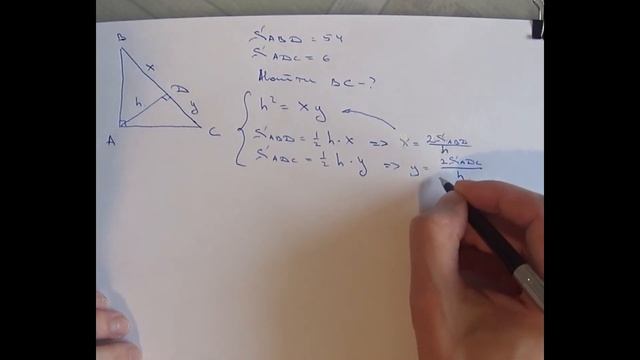 B
x
D
h
y
A
C
S ABD = 54
S ADC = 6
Найти BC - ?
h² = xy
S ABD = 1/2 h · x => x = 2S ABD / h
S ADC = 1/2 h · y => y = 2S ADC / h